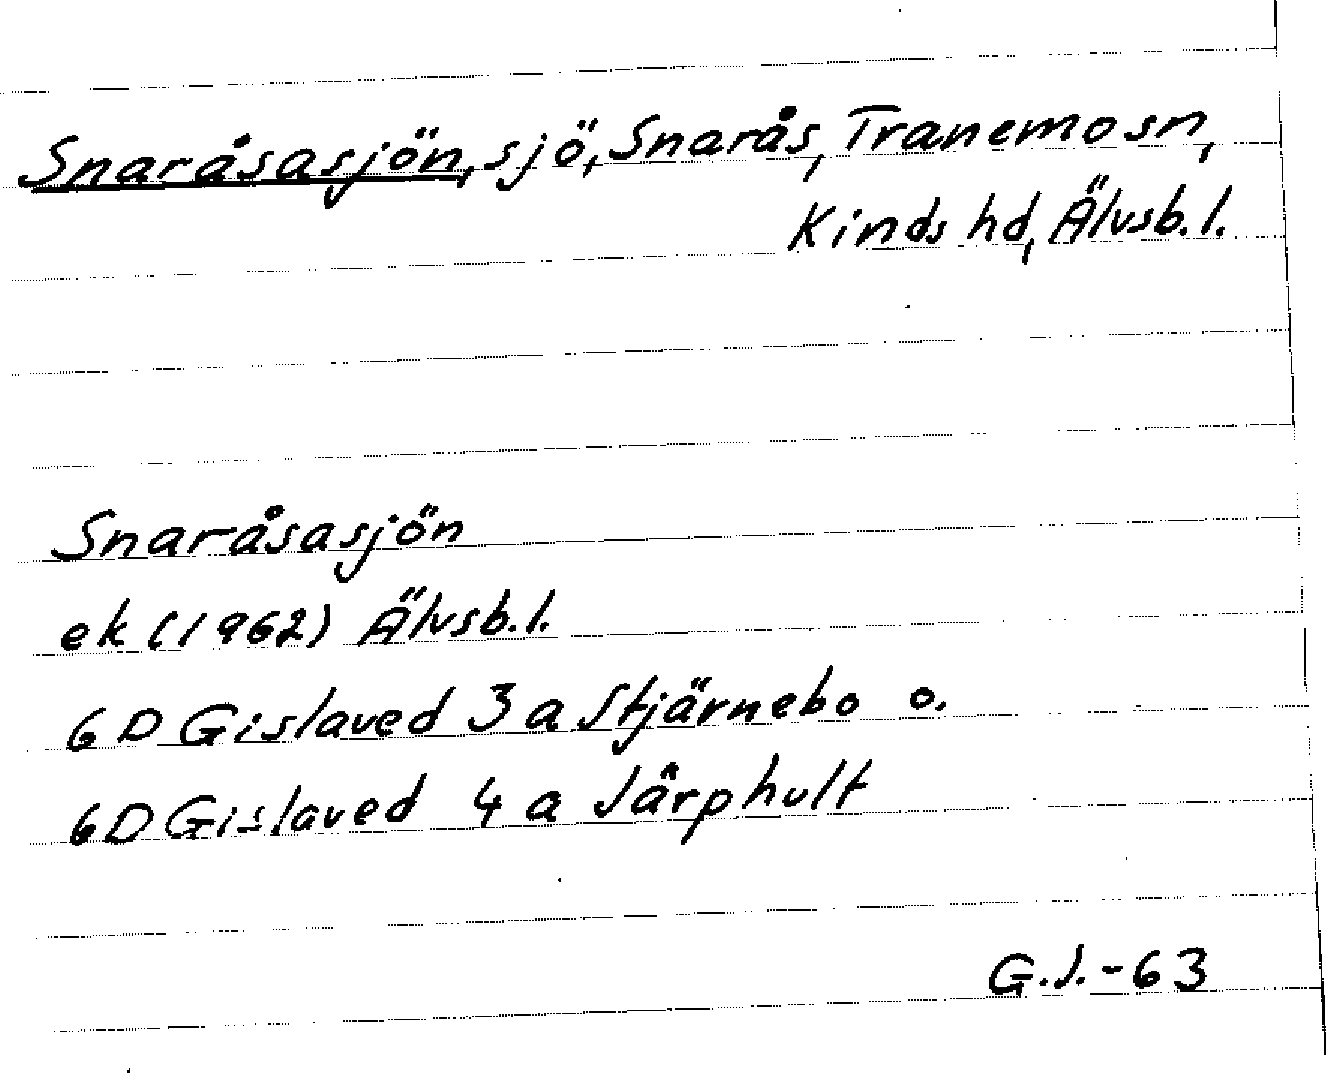 Snaråsasjön, sjö, Snarås, Tranemo sn,
Kinds hd, Älvsb. l.
Snaråsasjön
ek (1962) Älvsb. l.
6D Gislaved 3 a Stjärnebo o.
6D Gislaved 4 a Järphult
G.J.-63